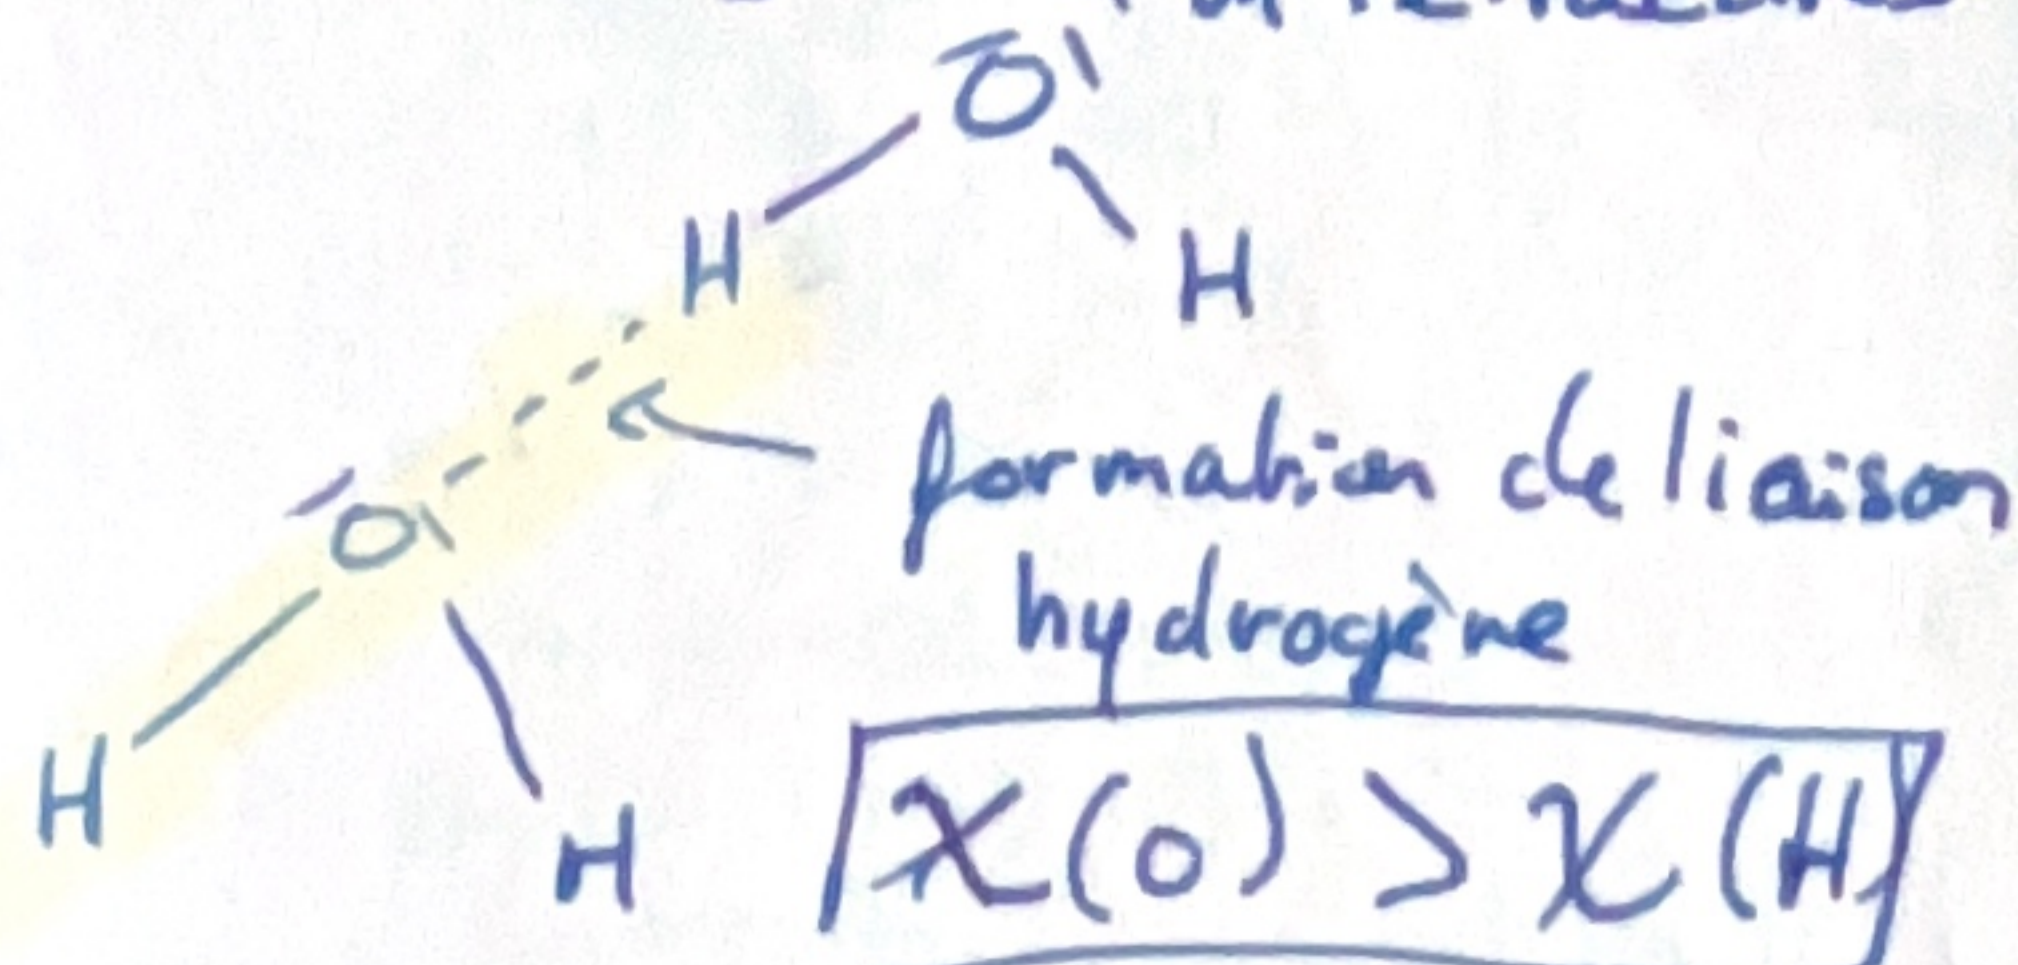 O
H
H
formation de liaison
O
hydrogène
H
H
χ(O) > χ(H)